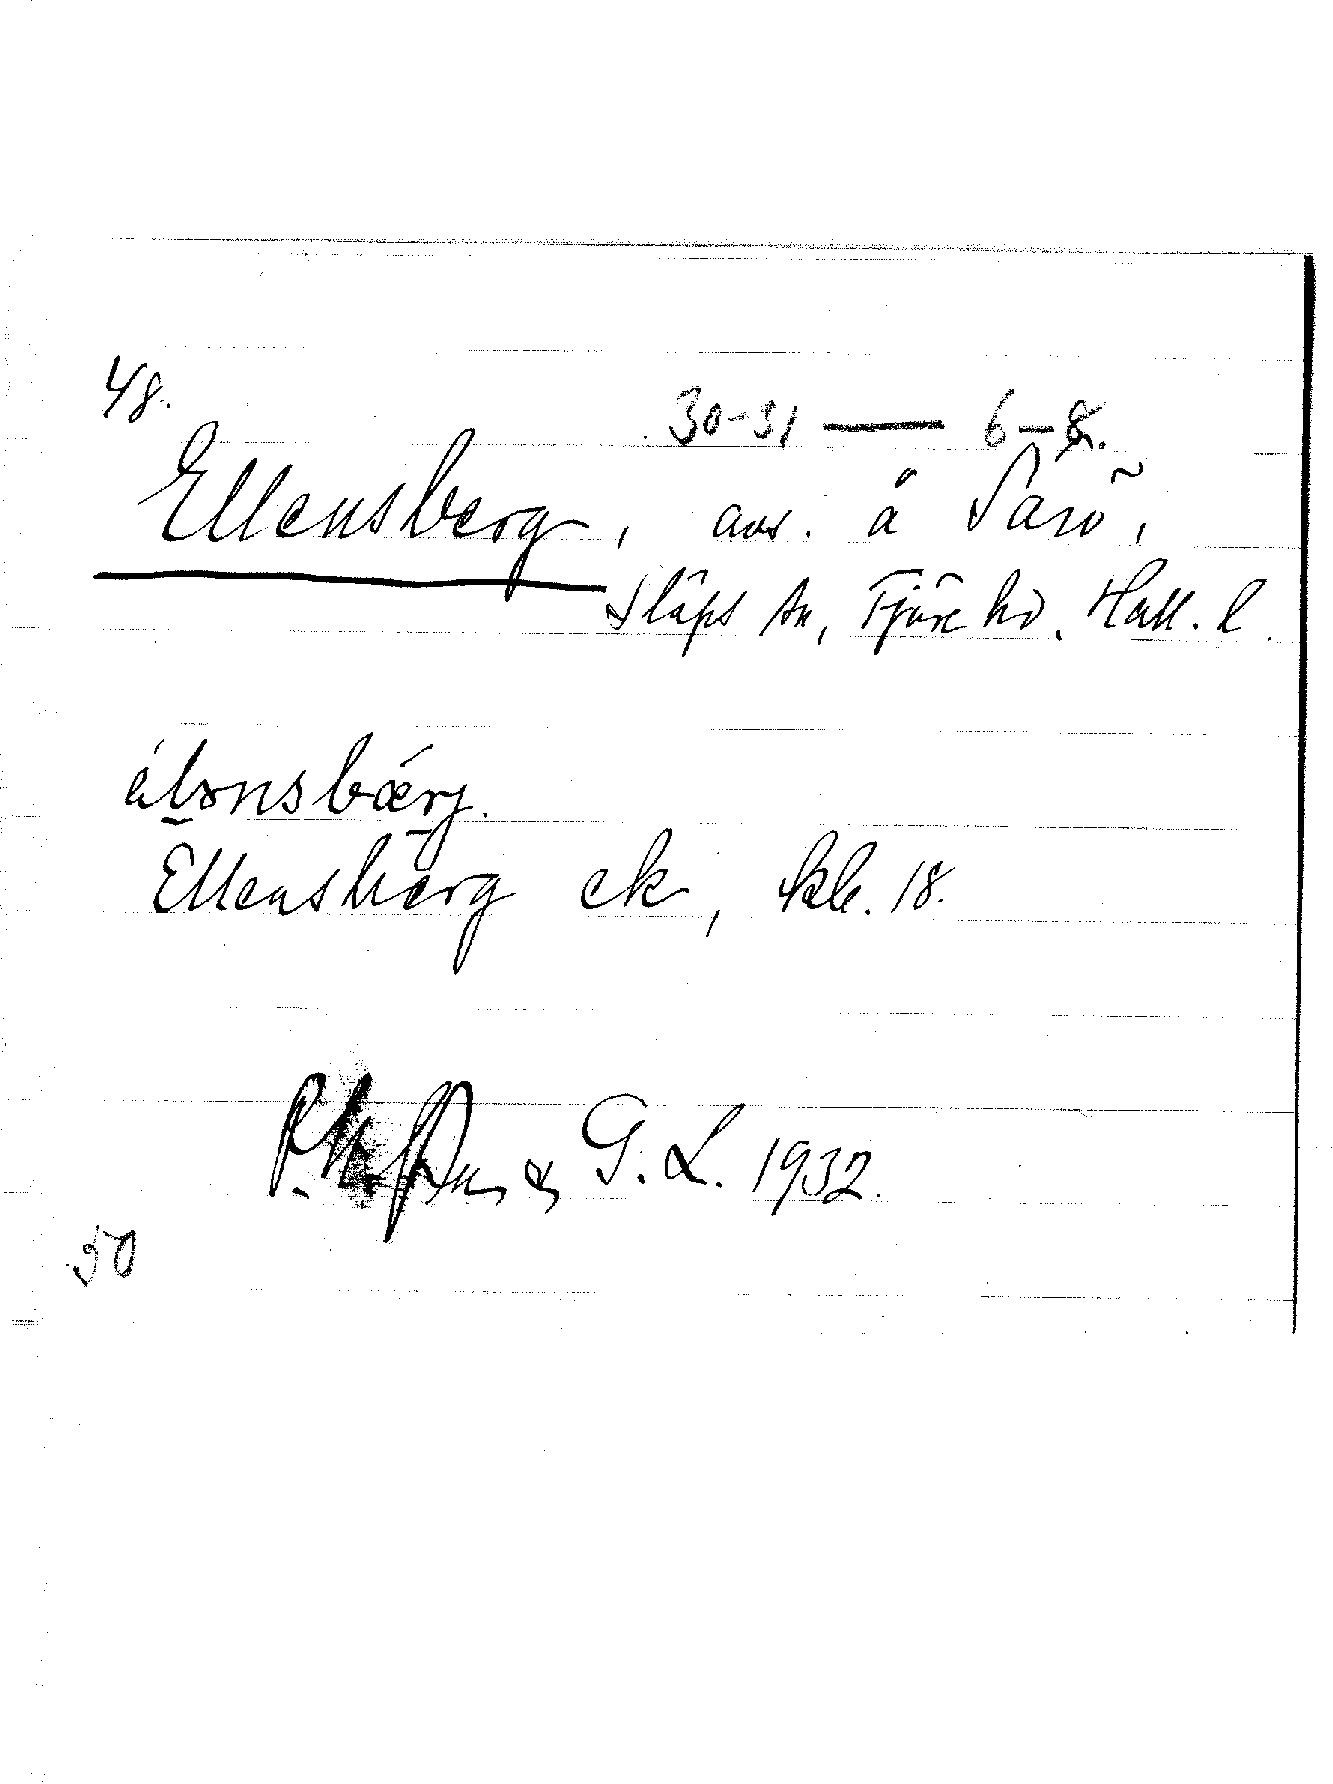 48.
30-31 — 6-8.
Ellensberg, avs. å Särö,
Släps sn, Fjäre hd, Hall. l.
álənsbærj.
Ellensberg ek, kbl. 18.
& G. L. 1932.
50